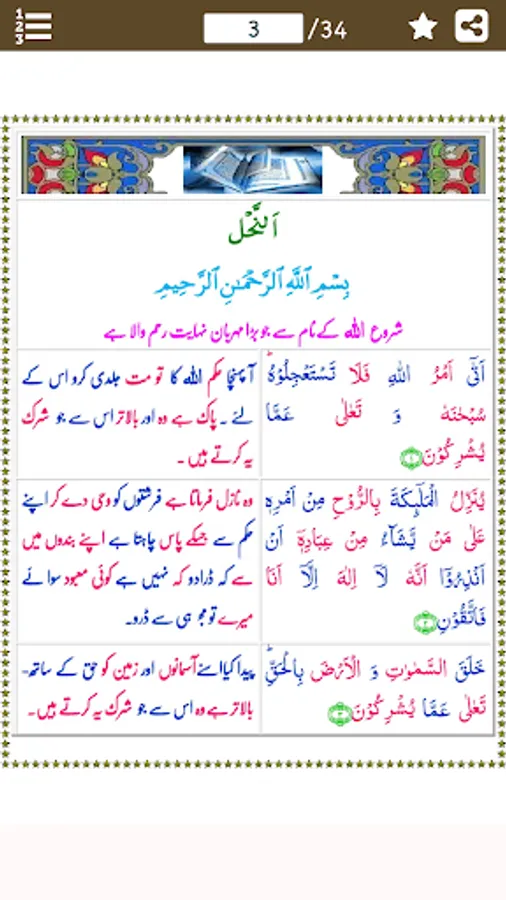 1
2
3
3 /34
اَلنَّحْل
بِسْمِ ٱللَّهِ ٱلرَّحْمَٰنِ ٱلرَّحِيمِ
شروع اللہ کے نام سے جو بڑا مہربان نہایت رحم والا ہے
اَتٰۤى اَمْرُ اللّٰهِ فَلَا تَسْتَعْجِلُوْهُ ؕ
سُبْحٰنَهٗ وَ تَعٰلٰى عَمَّا
يُشْرِكُوْنَ ﴿۱﴾
آ پہنچا حکم اللہ کا تو مت جلدی کرو اس کے
لئے ۔ پاک ہے وہ اور بالاتر اس سے جو شرک
یہ کرتے ہیں ۔
يُنَزِّلُ الْمَلٰٓئِكَةَ بِالرُّوْحِ مِنْ اَمْرِهٖ
عَلٰى مَنْ يَّشَآءُ مِنْ عِبَادِهٖۤ اَنْ
اَنْذِرُوْۤا اَنَّهٗ لَاۤ اِلٰهَ اِلَّاۤ اَنَا
فَاتَّقُوْنِ ﴿۲﴾
وہ نازل فرماتا ہے فرشتوں کو وحی دے کر اپنے
حکم سے جسکے پاس چاہتا ہے اپنے بندوں میں
سے کہ ڈرادو کہ نہیں ہے کوئی معبود سوائے
میرے تو مجھ ہی سے ڈرو۔
خَلَقَ السَّمٰوٰتِ وَ الْاَرْضَ بِالْحَقِّ ؕ
تَعٰلٰى عَمَّا يُشْرِكُوْنَ ﴿۳﴾
پیدا کیا اسنے آسمانوں اور زمین کو حق کے ساتھ-
بالاتر ہے وہ اس سے جو شرک یہ کرتے ہیں۔